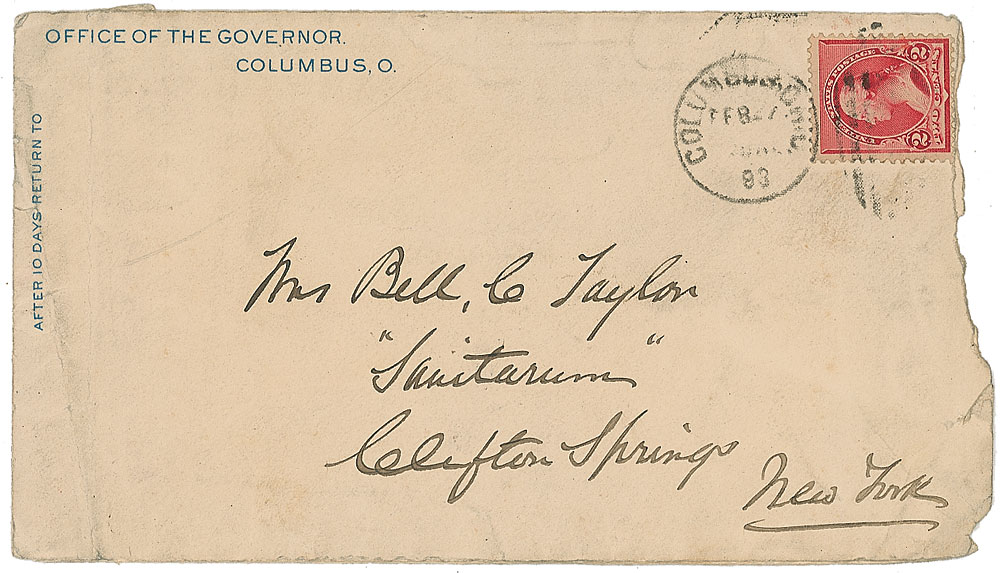 OFFICE OF THE GOVERNOR.
COLUMBUS, O.
AFTER 10 DAYS RETURN TO
COLUMBUS, OHIO
FEB
93
UNITED STATES POSTAGE
2 2
Mrs Bell, C Taylor
"Sanitarum"
Clifton Springs
New York